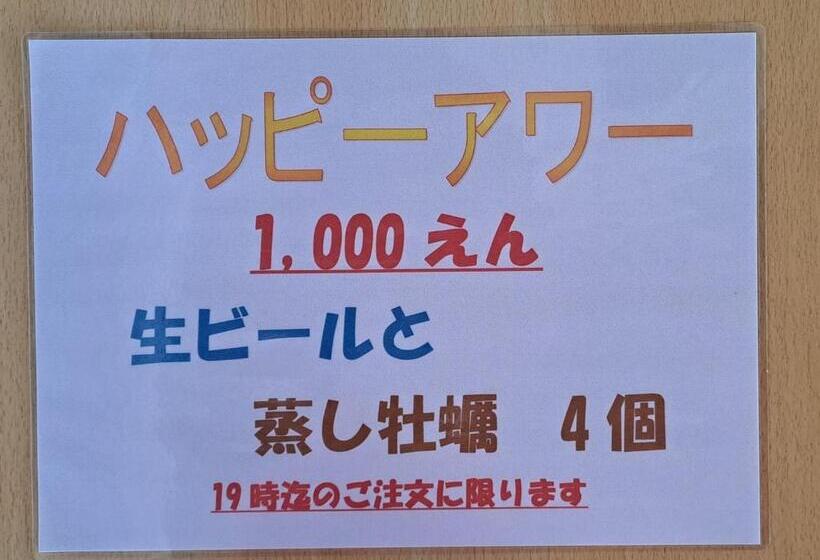 ハッピーアワー
1,000えん
生ビールと
蒸し牡蠣　4個
19時迄のご注文に限ります